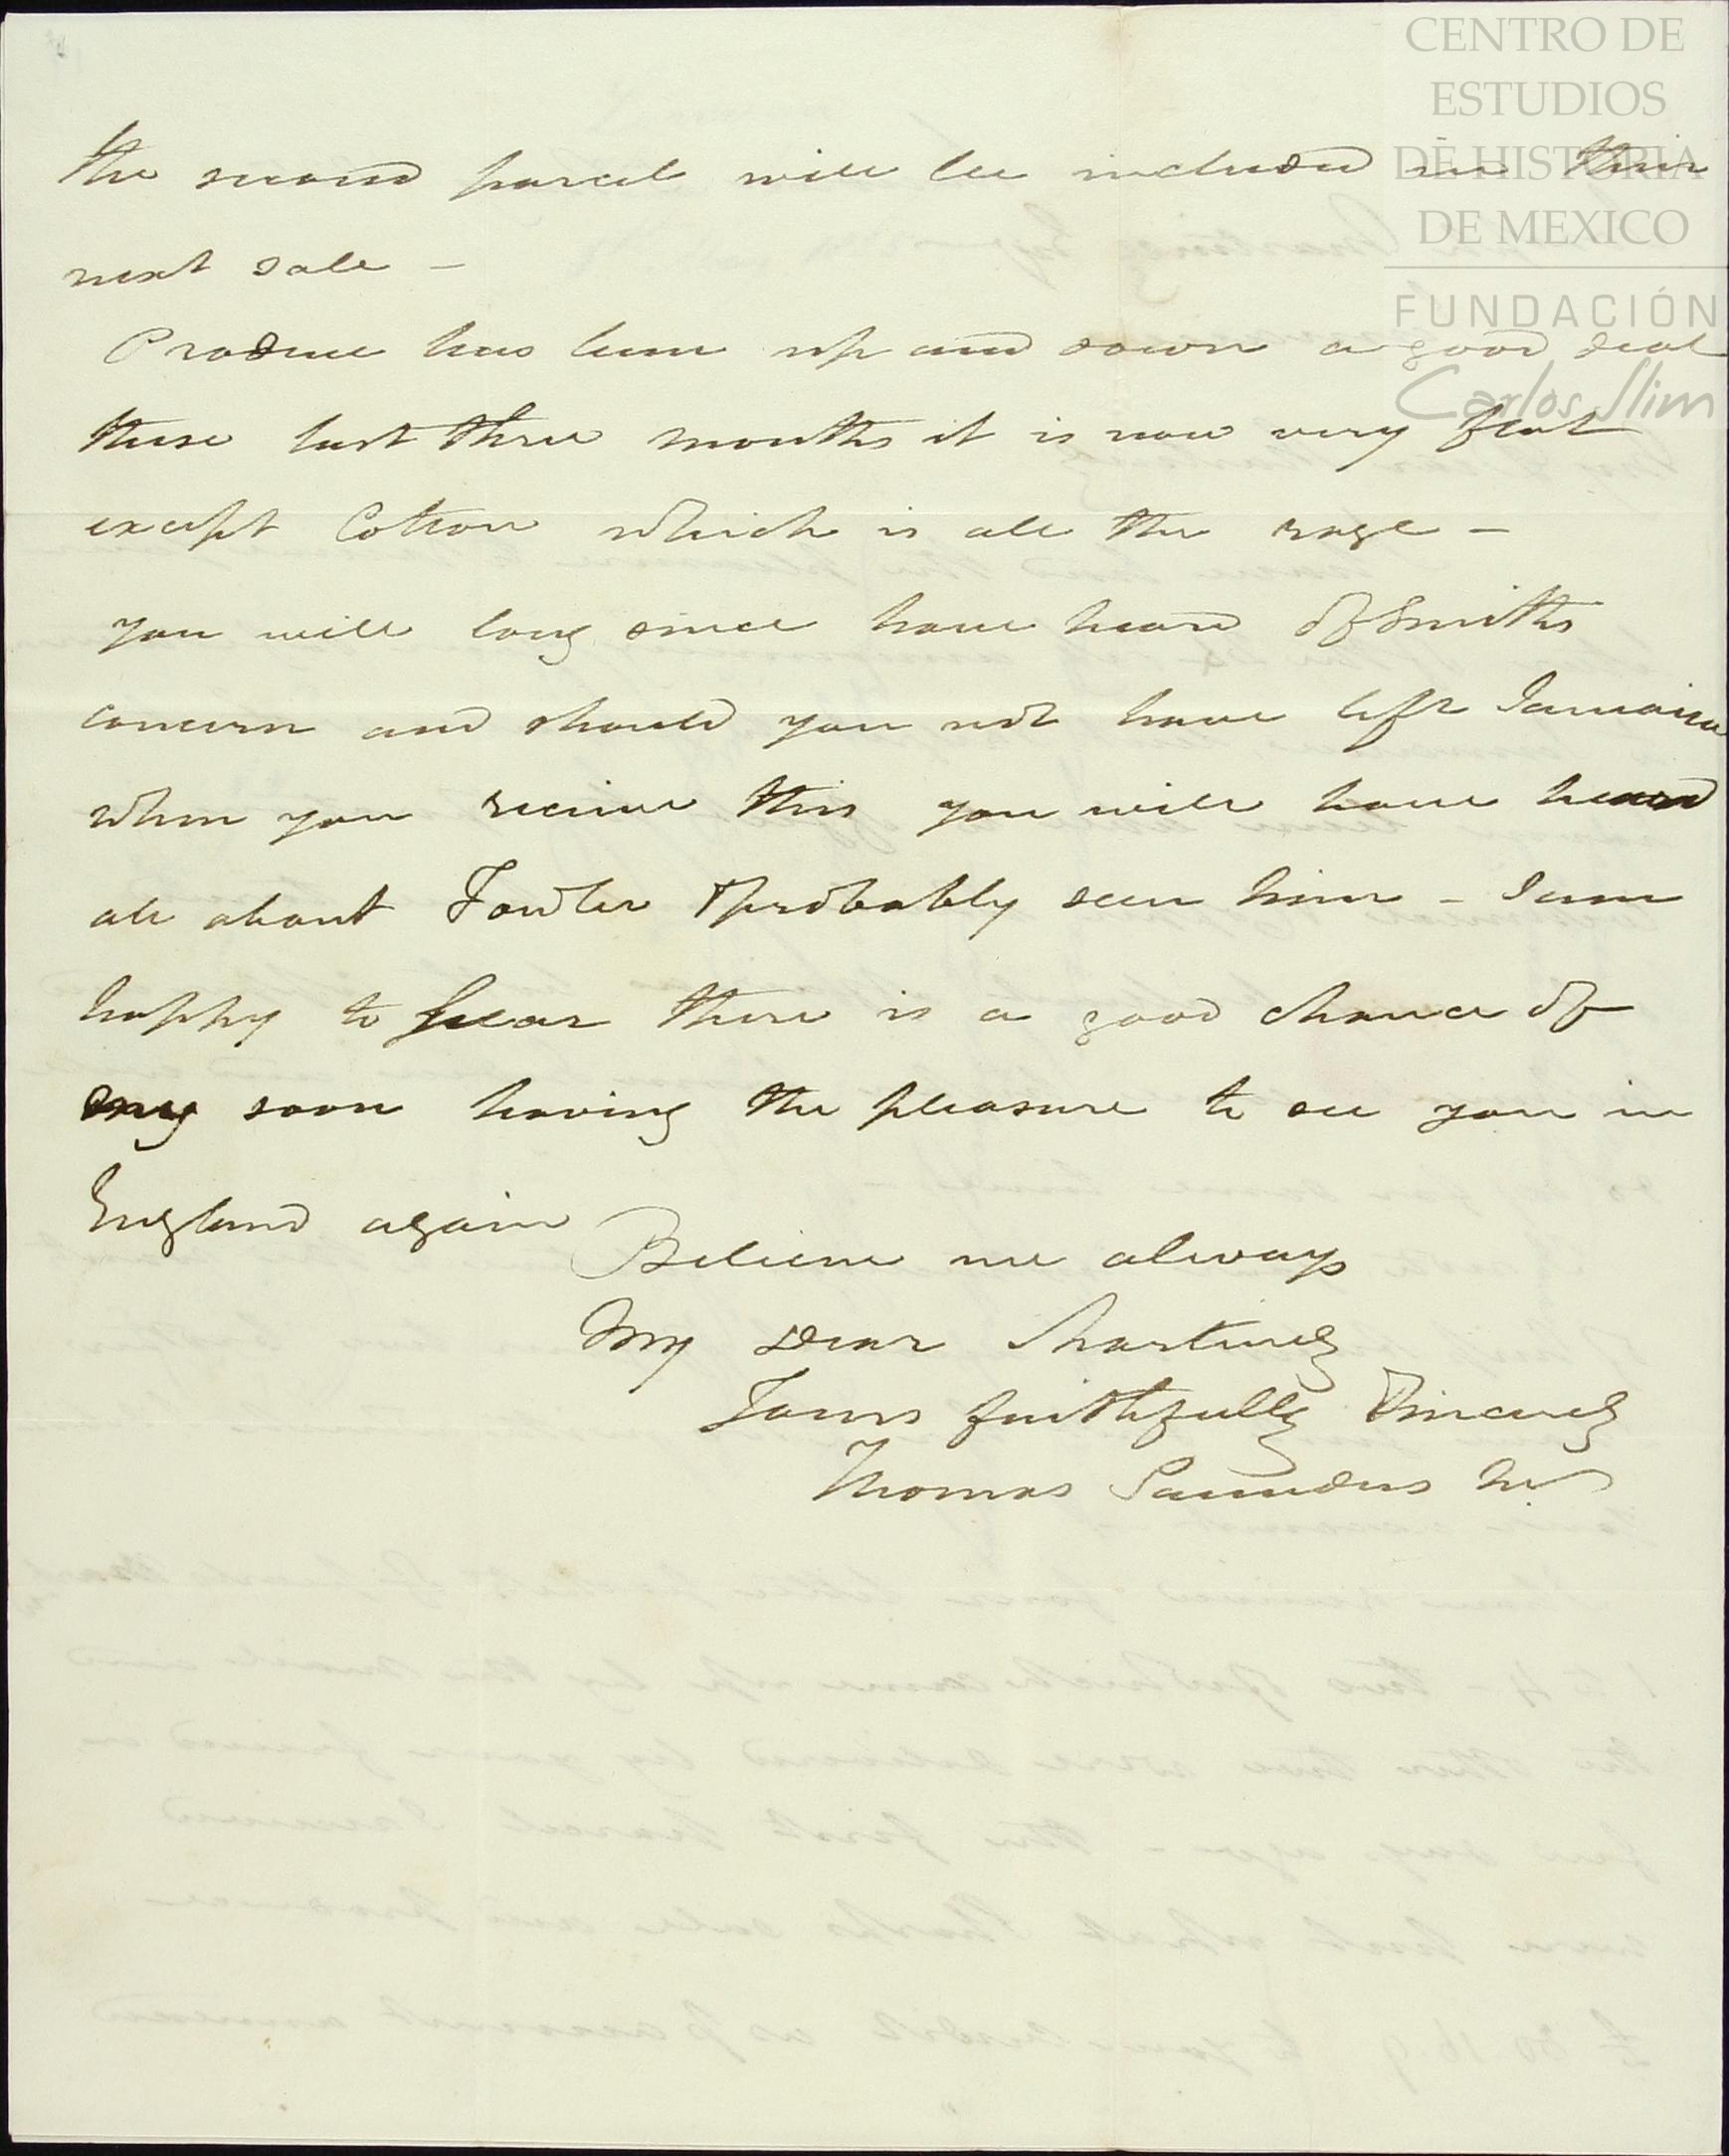 CENTRO DE
ESTUDIOS
DE HISTORIA
DE MEXICO
FUNDACIÓN
Carlos Slim
the second parcel will be included in their
next sale –
Produce has been up and down a good deal
these last three months it is now very flat
except Cotton which is all the rage –
you will long since have heard of Smiths
concern and should you not have left Jamaica
when you receive this you will have heard
all about Fowler & probably seen him – I am
happy to hear there is a good chance of
my soon having the pleasure to see you in
England again
Believe me always
My Dear Martinez
Yours faithfully & Sincerely
Thomas Saunders